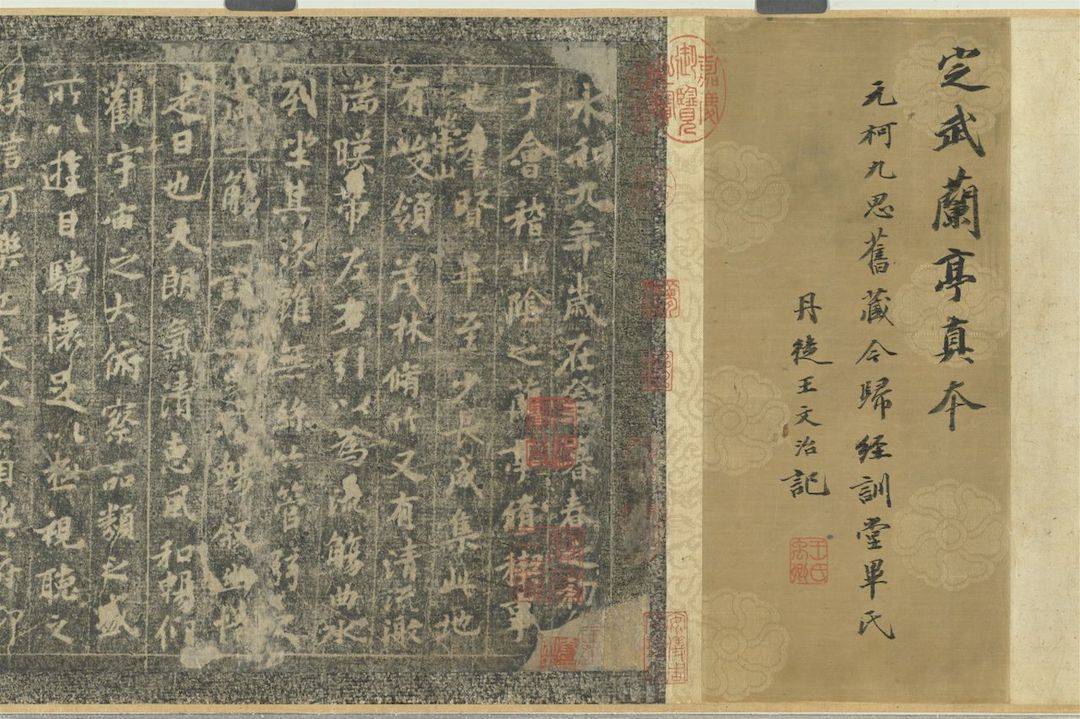 定武蘭亭真本
元柯九思舊藏今歸經訓堂畢氏
丹徒王文治記
王氏禹卿
嘉慶御覽之寶
永和九年歲在暮春之初
于會稽山陰之蘭亭脩禊事
也羣賢畢至少長咸集此地
有崇山峻領茂林脩竹又有清流激
湍暎帶左右引以為流觴曲水
列坐其次雖無絲竹管弦之
觴一詠暢敘幽情
是日也天朗氣清惠風和暢仰
觀宇宙之大俯察品類之盛
所以遊目騁懷足以極視聽之
娛信可樂也夫人之相與俯仰